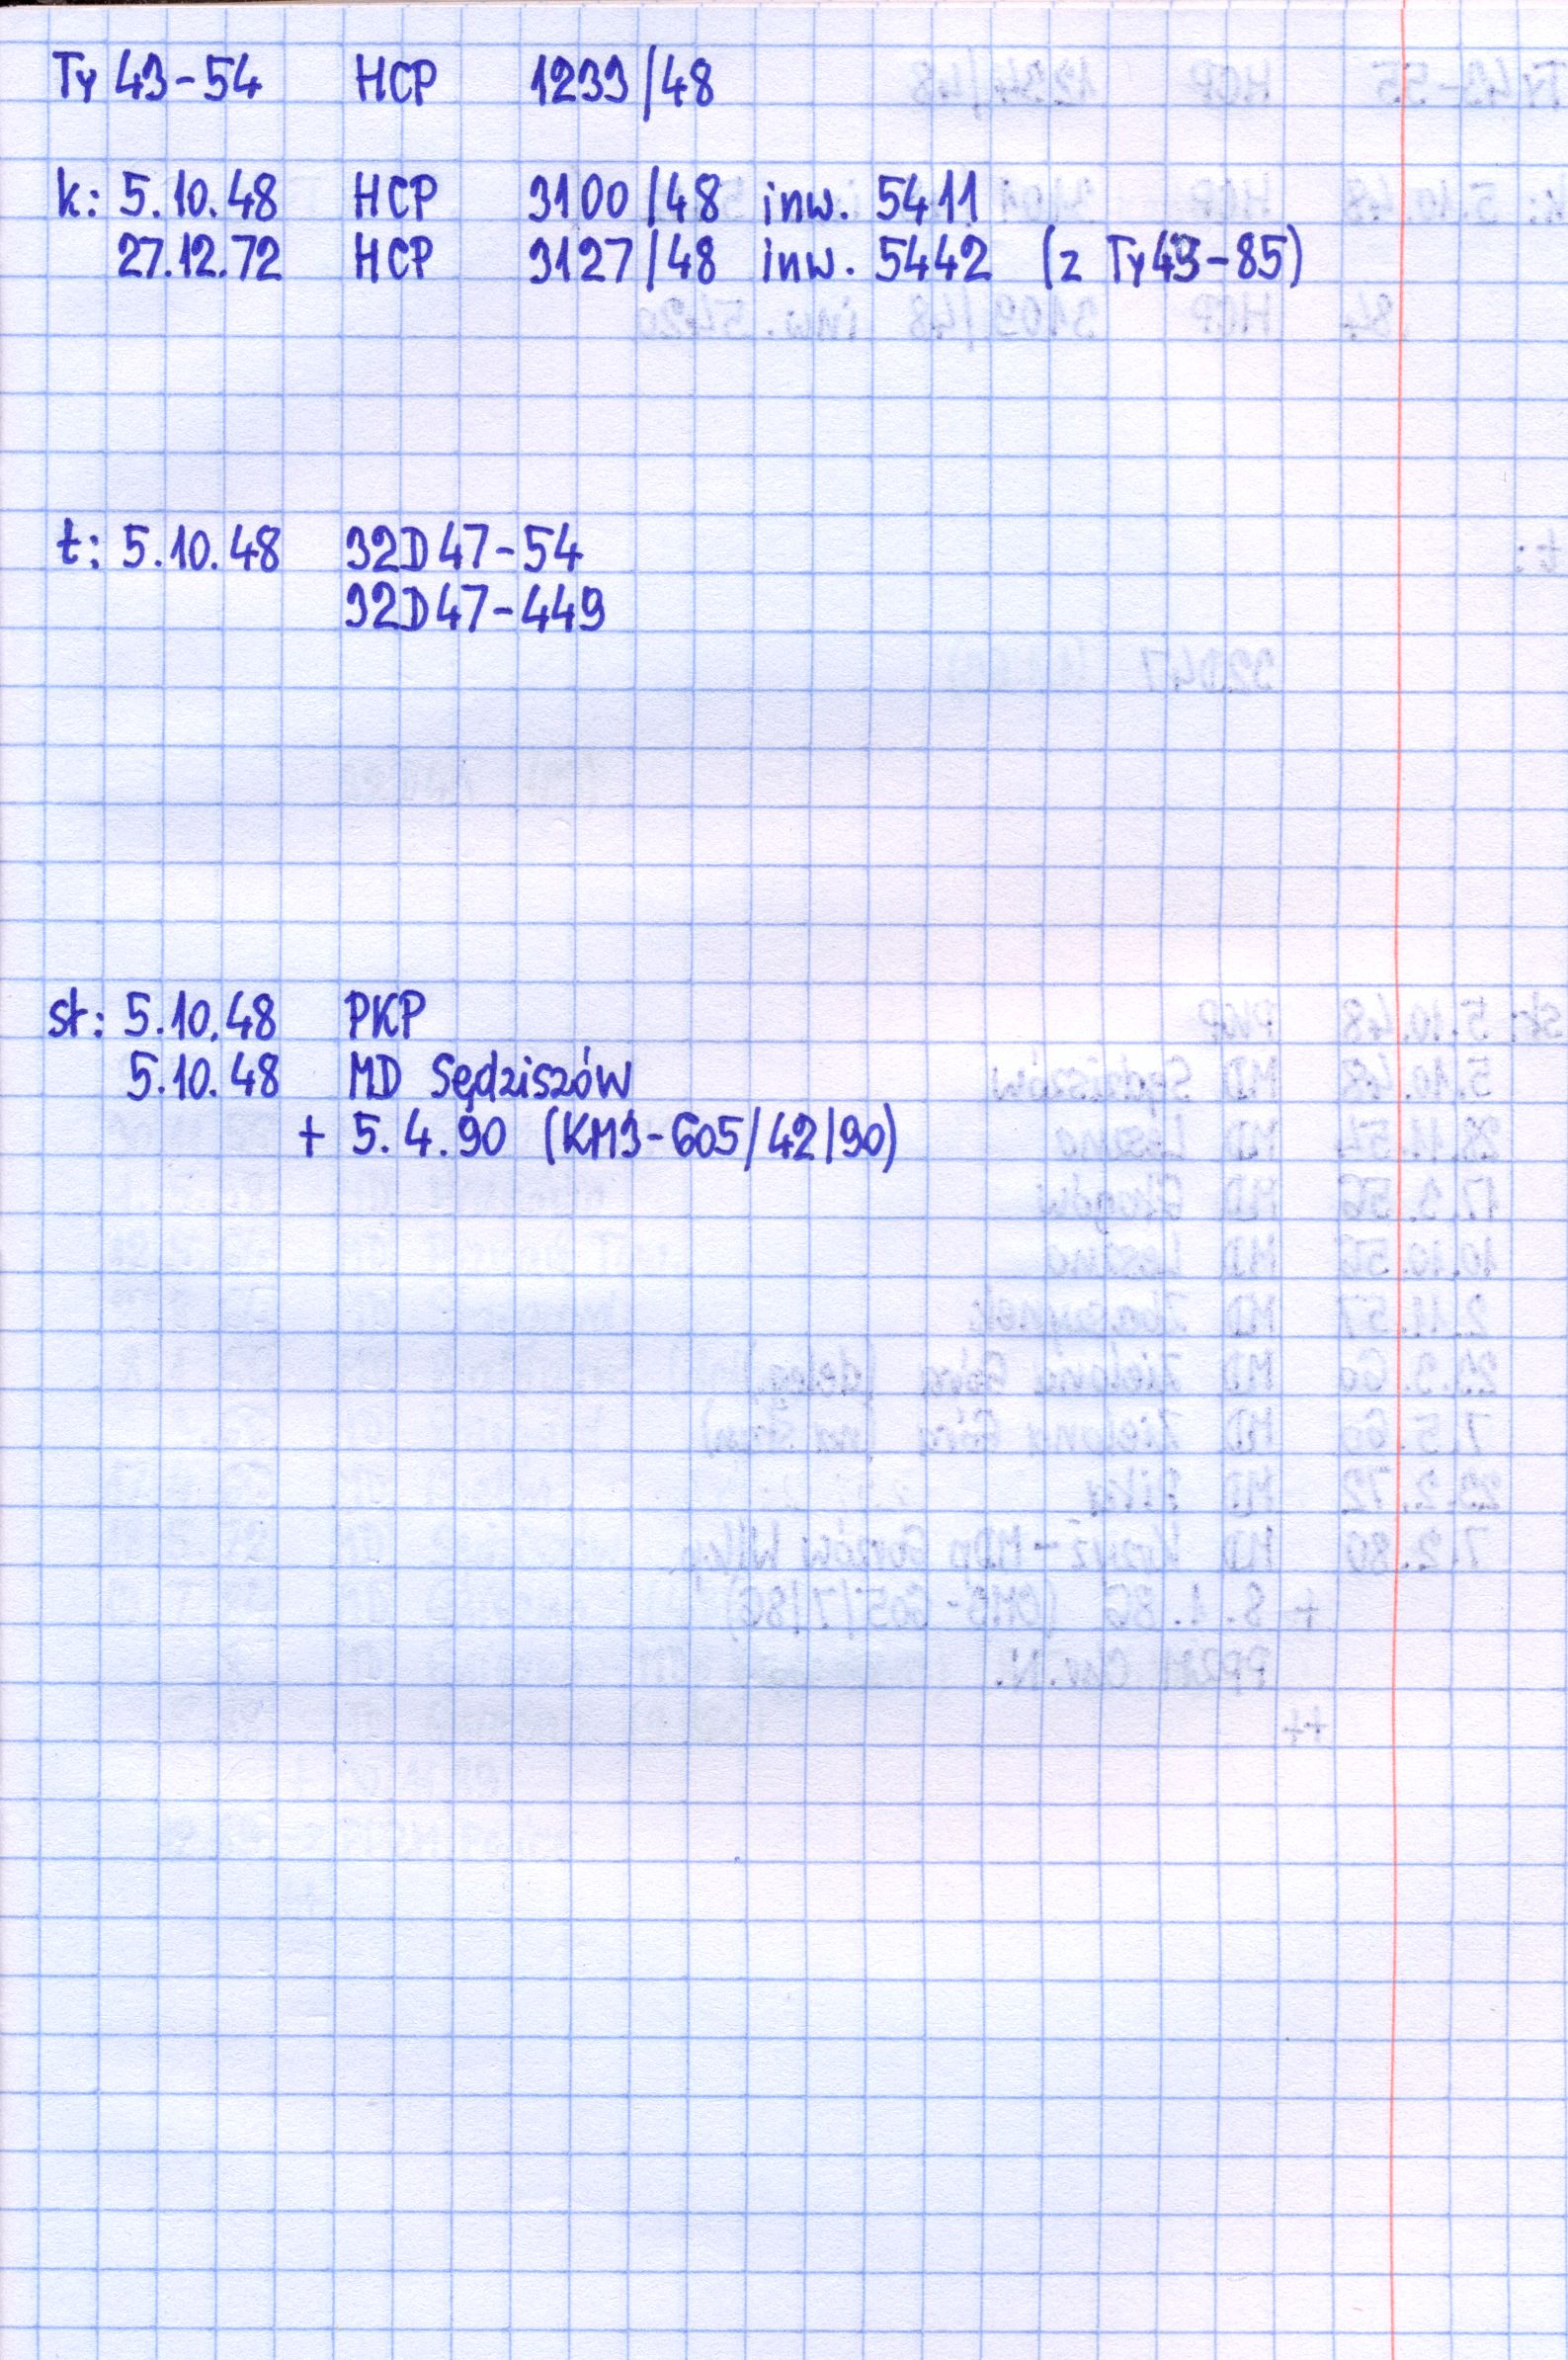 Ty 43-54 HCP 1233/48
k: 5.10.48 HCP 3100/48 inw. 5411
27.12.72 HCP 3127/48 inw. 5442 (z Ty43-85)
t: 5.10.48 32D47-54
32D47-449
st: 5.10.48 PKP
5.10.48 MD Sędziszów
+ 5.4.90 (KM3-605/42/90)